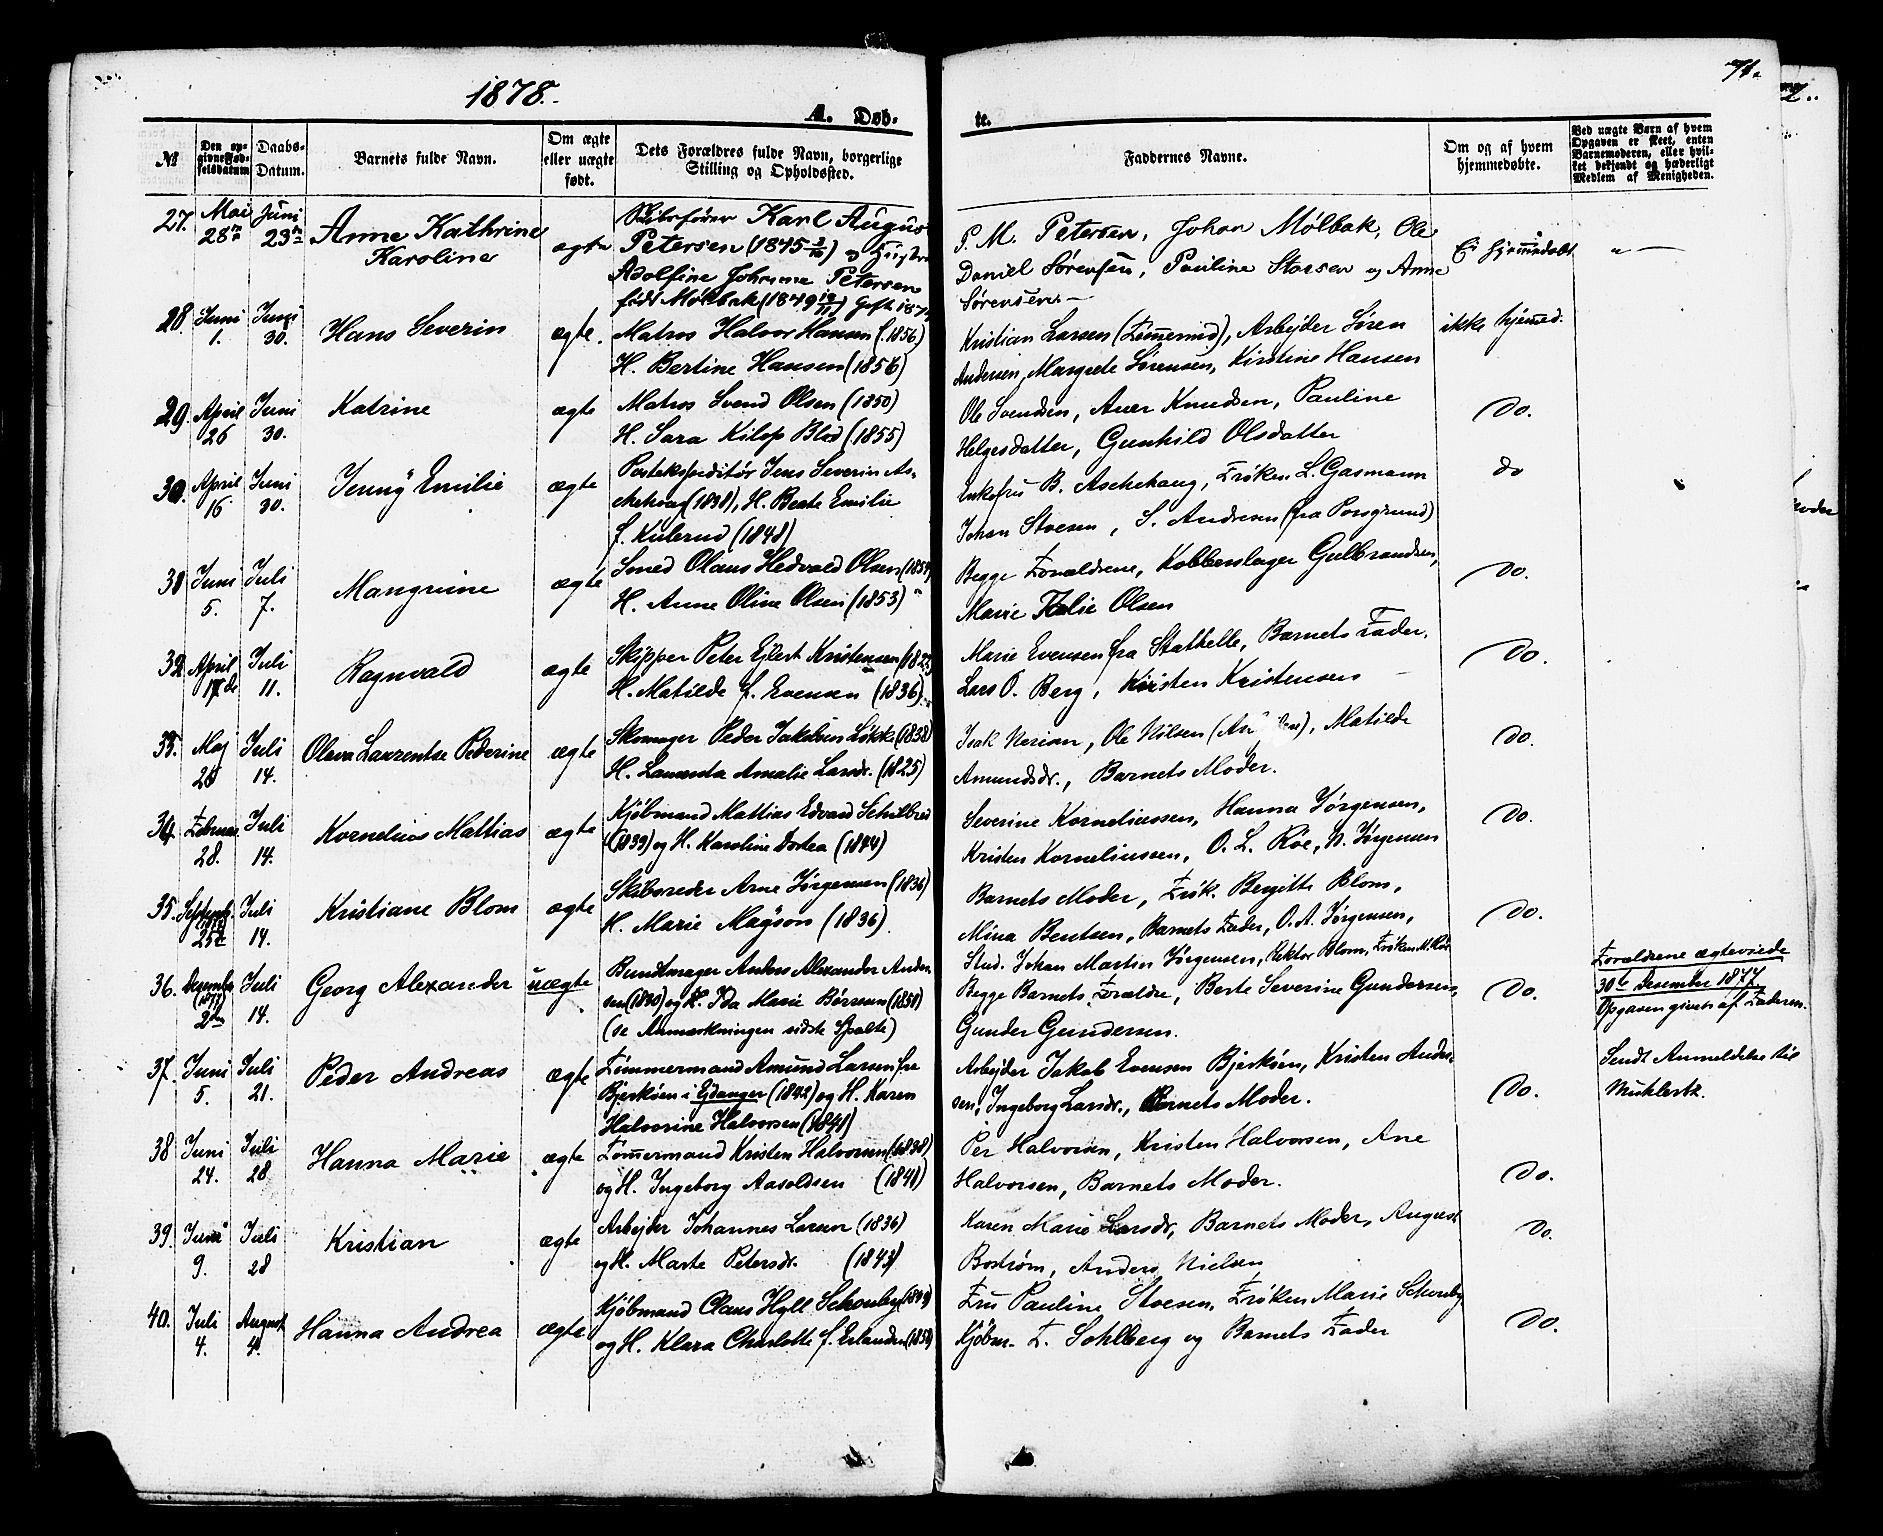 1878.
71.
A. Døb-
te.
№
Den op-
givne Fød-
selsdatum
Daabs-
Datum.
Barnets fulde Navn.
Om ægte
eller uægte
født.
Dets Forældres fulde Navn, borgerlige
Stilling og Opholdssted.
Faddernes Navne.
Om og af hvem
hjemmedøbte.
Ved uægte Børn af hvem
Opgaven er skeet, enten
Barnemoderen, eller hvil-
ket bekjendt og hæderligt
Medlem af Menigheden.
27. Mai Juni
28 23
Anne Kathrine
Karoline
ægte
Karl August
Petersen (1845 og
Adolfine Johanne Petersen
født Mølbak (1849 Gift 187
P. M. Petersen, Johan Mølbak, Ole
Daniel Sørensen, Pauline Stoesen og Anne
Sørensen
Ei hjemmedøbt
28 Juni Juni
1. 30.
Hans Severin
ægte.
Matros Halvor Hansen (1856)
H. Bertine Hansen (1856)
Kristian Larsen, Arbejder Søren
Andersen, Margrete Sørensen, Kirstine Hansen
ikke hjemmed.
29. April Juni
26 30.
Katrine
ægte
Matros Svend Olsen (1850)
H. Sara Kilop Blid (1855)
Ole Svendsen, Aver Knudsen, Pauline
Helgesdatter, Gunhild Olsdatter
Do.
30. April Juni
16 30.
Jenny Emilie
ægte
Postekspeditør Jens Severin As-
chehoug (1838), H. Beate Emilie
f. Kulerud (1848)
Enkefru B. Aschehoug, Frøken L. Gasmann
Johan Stoesen, S. Andresen (fra Porsgrund)
do
31 Juni Juli
5. 7.
Mangnine
ægte
Smed Olaus Hedvald Olsen (1854)
H. Anne Oline Olsen (1853)
Begge Forældrene, Kobberslager Gulbrandsen,
Marie Olsen
Do.
32 April Juli
17de 11.
Ragnvald
ægte
Skipper Peter Ejlert Kristensen
H. Matilde f. Evensen (1836)
Marie Evensen fra Stathelle, Barnets Fader,
Lars O. Berg, Kirsten Kristensen
Do.
33. Maj Juli
28 14.
Olava Laurentse Pederine
ægte
Skomager Peder Jakobsen Løkke (1838)
H. Laurenta Amalie Larsdr. (1825)
Isak Nerian, Ole Nilsen, Matilde
Amundsdr., Barnets Moder.
Do.
34. Februar Juli
28. 14.
Kornelius Mattias
ægte
Kjøbmand Mattias Edvard Schilbred
(1839) og H. Karoline Dortea (1844)
Severine Korneliussen, Hanna Jørgensen,
Kristen Korneliussen, O. L. Röe, N. Jørgensen
Do.
35. Septemb. Juli
25 14.
Kristiane Blom
ægte
Skibsreder Arne Jørgensen (1836)
H. Marie Magson (1836)
Barnets Moder, Frøk. Bergitte Blom,
Mina Bentsen, Barnets Fader, O. A. Jørgensen,
Stud. Johan Martin Jørgensen, Rektor Blom, Frøken M. Röe
Do.
36. Desember Juli
(1877) 2den 14.
Georg Alexander
uægte
Bundtmager Anders Alexander Ander-
sen (1840) og H. Ida Marie Børresen (1851)
(se Anmærkningen sidste Spalte)
Begge Barnets Forældre, Berte Severine Gundersen,
Gunder Gundersen.
Do.
Forældrene ægteviede
30te Desember 1877
Opgaven given af Faderen.
37. Juni Juli
5. 21.
Peder Andreas
ægte
Tømmermand Amund Larsen fra
Bjerkøen i Ejdanger (1842) og H. Karen
Halvorine Halvorsen (1841)
Arbejder Jakob Evensen Bjerkøen, Kristen Ander-
sen, Ingeborg Larsdr., Barnets Moder.
Do.
Sendt Anmeldelse til
38 Juni Juli
24. 28
Hanna Marie
ægte
Tømmermand Kristen Halvorsen (1838)
og H. Ingeborg Aasoldsen (1841)
Per Halvorsen, Kristen Halvorsen, Ane
Halvorsen, Barnets Moder.
Do.
39. Juni Juli
9. 28
Kristian
ægte
Arbejder Johannes Larsen (1836)
og H. Marte Petersdr. (1843)
Karen Marie Larsdr, Barnets Moder, August
Bostrøm, Anders Nielsen
Do.
40. Juli August
4. 4.
Hanna Andrea
ægte
Kjøbmand Claus Hyll Schonby
og H. Klara Charlotte f. Erlandsen (1850)
Fru Pauline Stoesen, Frøken Marie Schonby
Kjøbm. F. Sohlberg og Barnets Fader
Do.